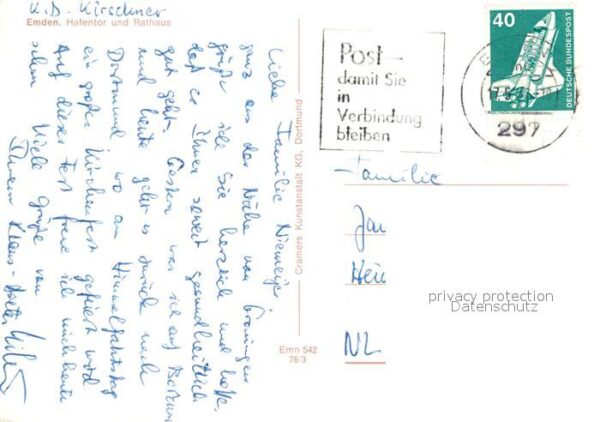 K.D. Kirschner
Emden. Hafentor und Rathaus
Liebe Familie Niemeijer!
ganz aus der Nähe von Groningen
grüße ich Sie herzlich und hoffe,
daß es Ihnen soweit gesundheitlich
gut geht. Gestern war ich auf Borkum
und heute geht es zurück nach
Dortmund wo an Himmelfahrtstag
ein großes Kirchenfest gefeiert wird
Auf dieses Fest freue ich mich heute
schon Viele Grüße von
Ihrem Klaus-Dieter
Cramers Kunstanstalt KG, Dortmund
Emn 542
76/3
Post-
damit Sie
in
Verbindung
bleiben
40
DEUTSCHE BUNDESPOST
297
Familie
Jan
NL
privacy protection
Datenschutz